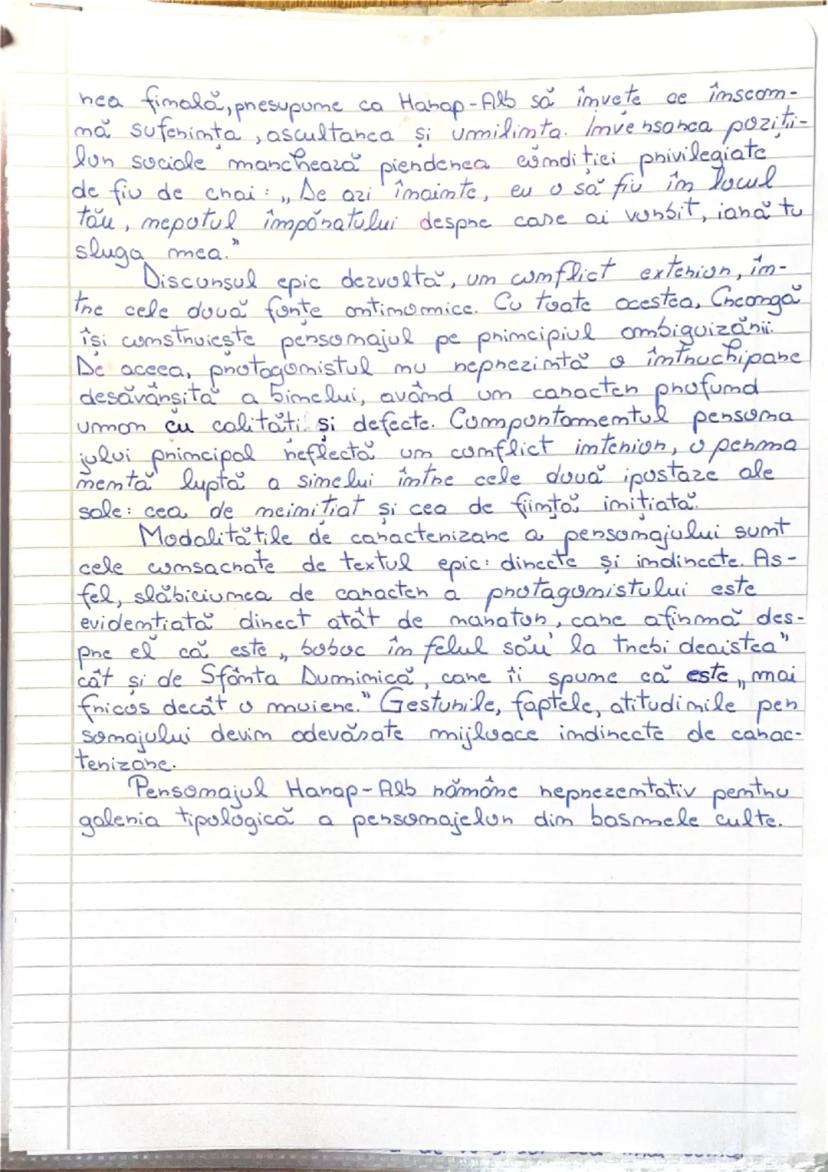 rea finală, presupune ca Harap-Alb să învețe ce înseam-
nă suferința, ascultarea și umilința. Inversarea poziții-
lor sociale marchează pierderea condiției privilegiate
de fiu de crai: „De azi înainte, eu o să fiu în locul
tău, nepotul împăratului despre care ai vorbit, iară tu
sluga mea."
Discursul epic dezvoltă, un conflict exterior, în-
tre cele două forțe antinomice. Cu toate acestea, Creangă
își construiește personajul pe principiul ambiguizării.
De aceea, protagonistul nu reprezintă o întruchipare
desăvârșită a binelui, având un caracter profund
uman cu calități și defecte. Comportamentul persona
jului principal reflectă un conflict interior, o perma
nentă luptă a sinelui între cele două ipostaze ale
sale: cea de neinițiat și cea de ființă inițiată.
Modalitățile de caracterizare a personajului sunt
cele consacrate de textul epic: directe și indirecte. As-
fel, slăbiciunea de caracter a protagonistului este
evidențiată direct atât de narator, care afirmă des-
pre el că este „boboc în felul său la trebi deaistea"
cât și de Sfânta Duminică, care îi spune că este „mai
fricos decât o muiere." Gesturile, faptele, atitudinile per
sonajului devin adevărate mijloace indirecte de carac-
terizare.
Personajul Harap-Alb rămâne reprezentativ pentru
galeria tipologică a personajelor din basmele culte.